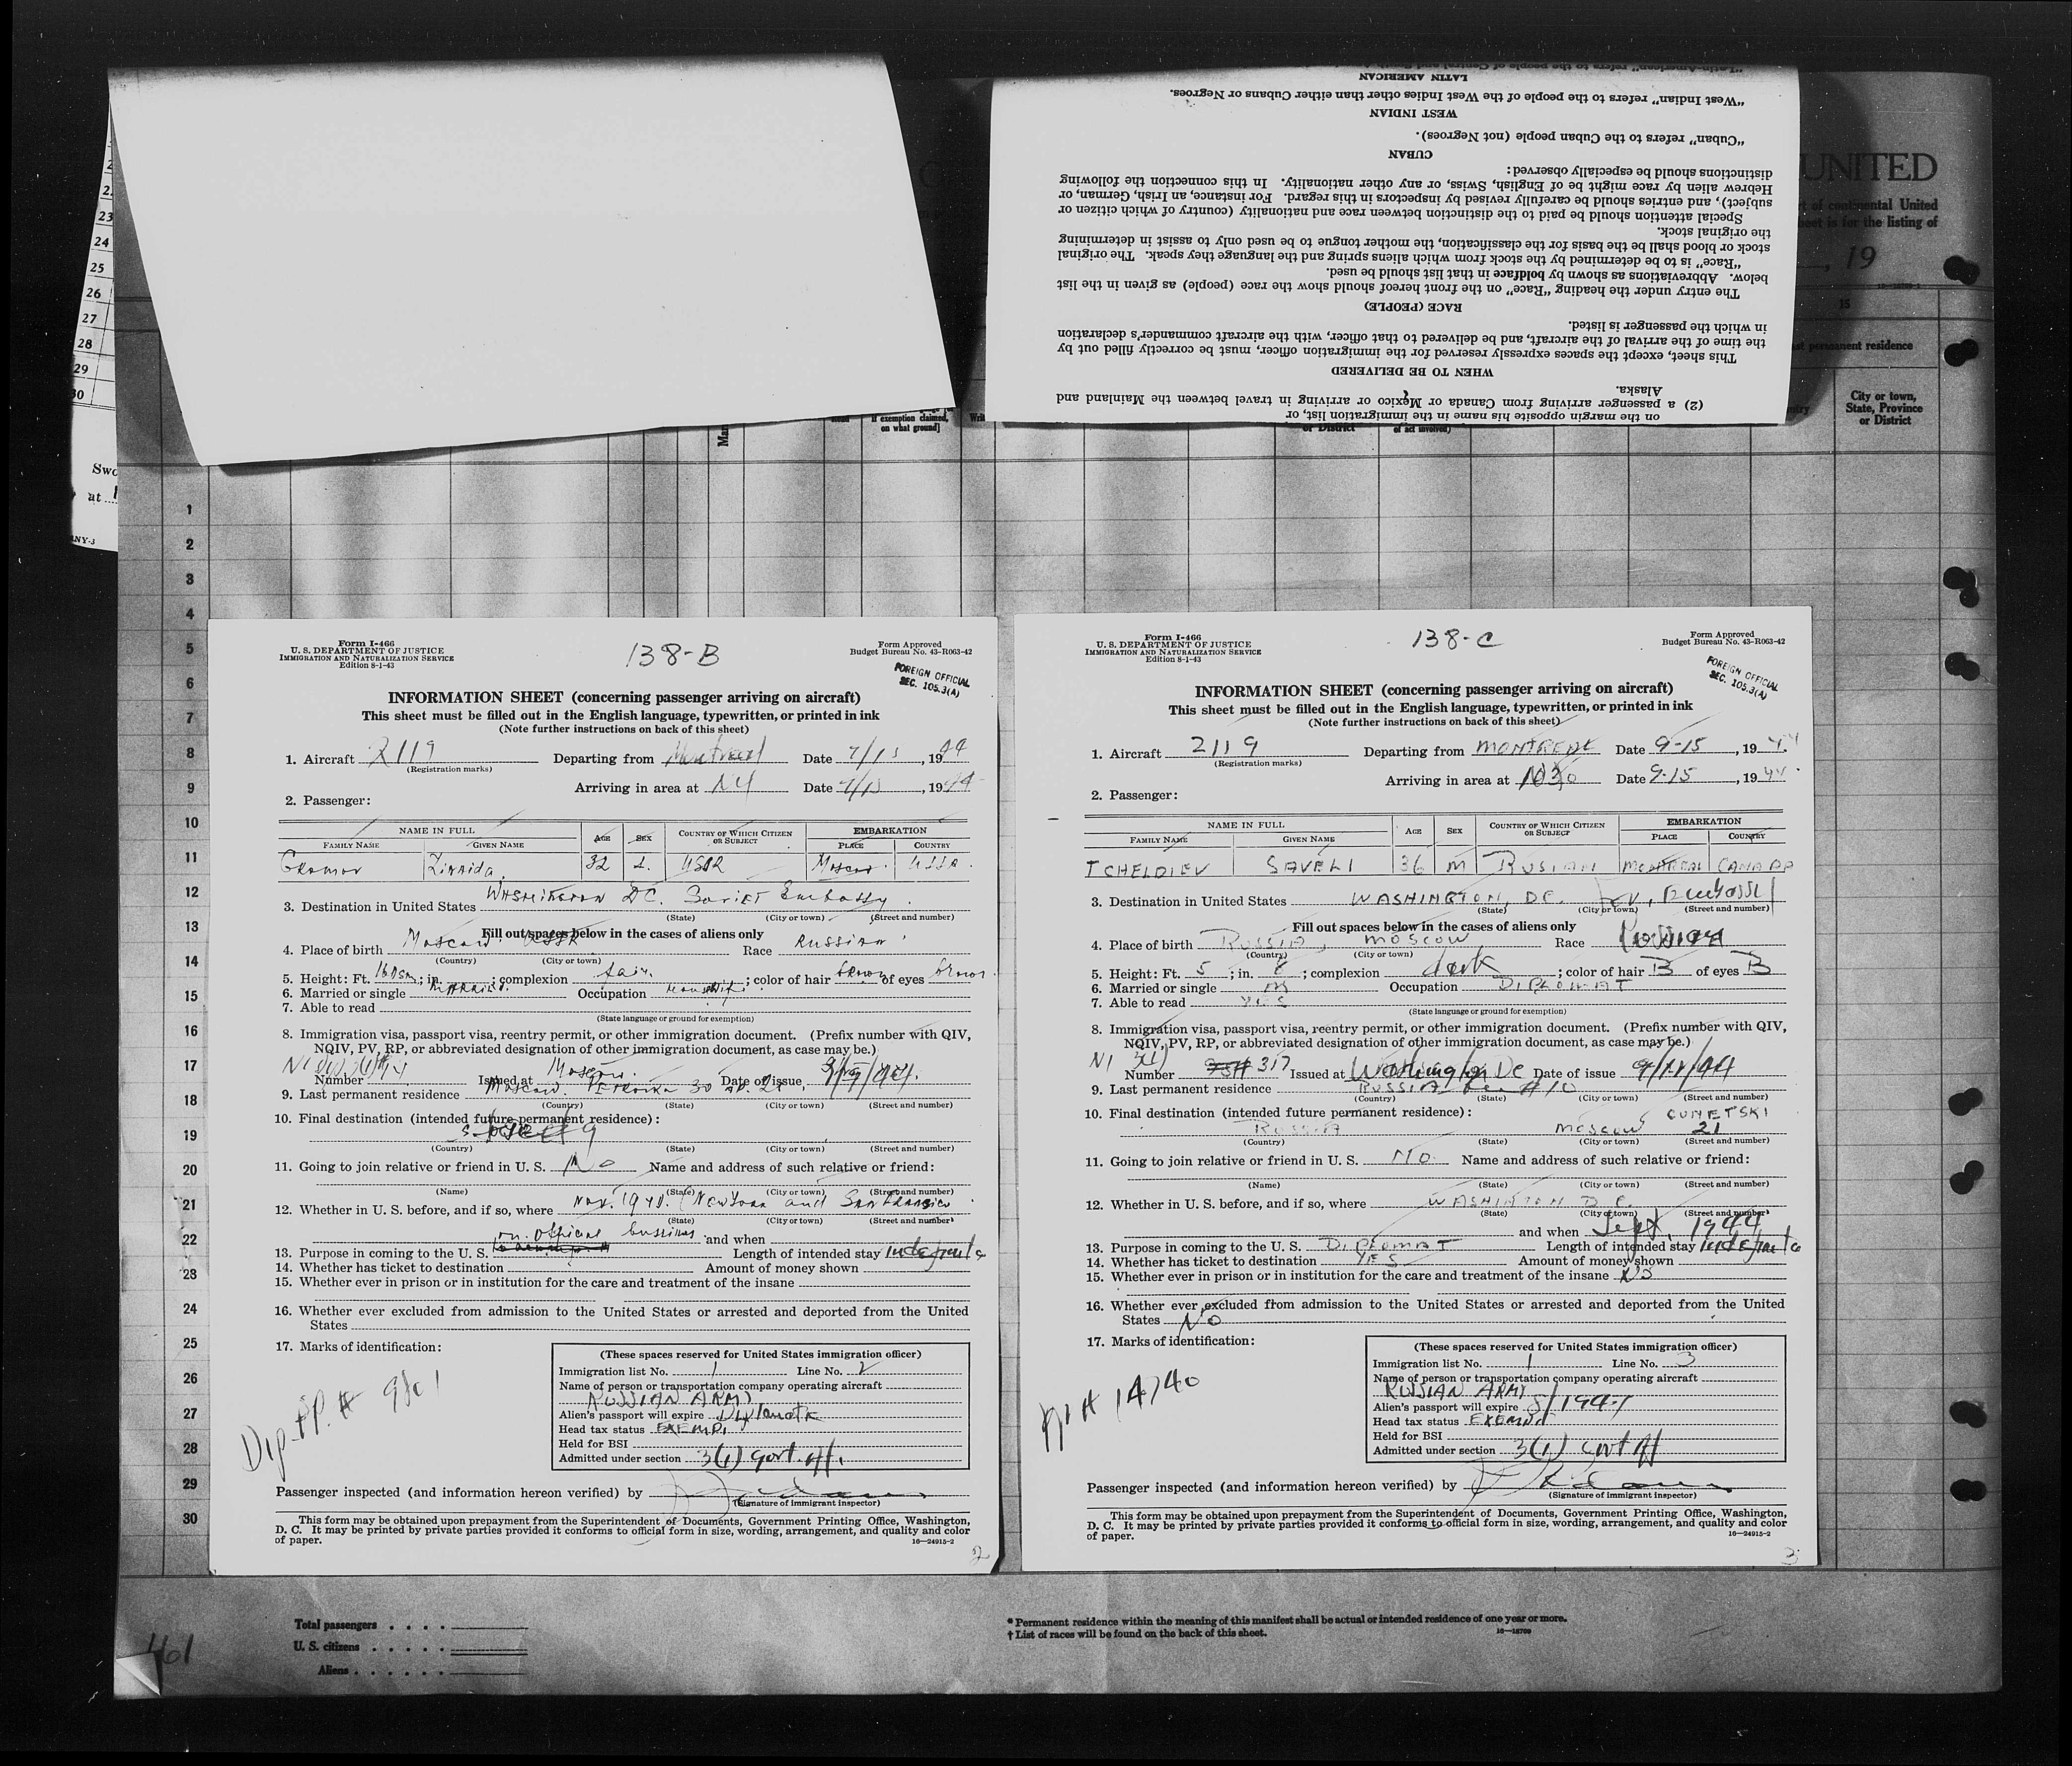 "Latin-American" refers to the people of Central and South
LATIN AMERICAN
"West Indian" refers to the people of the West Indies other than either Cubans or Negroes.
WEST INDIAN
"Cuban" refers to the Cuban people (not Negroes).
CUBAN
distinctions should be especially observed:
Hebrew alien by race might be of English, Swiss, or any other nationality. In this connection the following
subject), and entries should be carefully revised by inspectors in this regard. For instance, an Irish, German, or
Special attention should be paid to the distinction between race and nationality (country of which citizen or
the original stock.
stock or blood shall be the basis for the classification, the mother tongue to be used only to assist in determining
"Race" is to be determined by the stock from which aliens spring and the language they speak. The original
below. Abbreviations as shown by boldface in that list should be used.
The entry under the heading "Race" on the front hereof should show the race (people) as given in the list
RACE (PEOPLE)
in which the passenger is listed.
the time of the arrival of the aircraft, and be delivered to that officer, with the aircraft commander's declaration
This sheet, except the spaces expressly reserved for the immigration officer, must be correctly filled out by
WHEN TO BE DELIVERED
Alaska.
(2) a passenger arriving from Canada or Mexico or arriving in travel between the Mainland and
on the margin opposite his name in the immigration list, or
UNITED
of continental United
sheet is for the listing of
, 19
15
permanent residence
City or town,
State, Province
or District
if exemption claimed,
on what ground]
or District
of act involved)
23
24
25
26
27
28
29
30
Swo
at
NY-3
1
2
3
4
5
6
7
8
9
10
11
12
13
14
15
16
17
18
19
20
21
22
28
24
25
26
27
28
29
30
Form I-466
U. S. DEPARTMENT OF JUSTICE
IMMIGRATION AND NATURALIZATION SERVICE
Edition 8-1-43
138-B
Form Approved
Budget Bureau No. 43-R063-42
FOREIGN OFFICIAL
SEC. 105.3(A)
INFORMATION SHEET (concerning passenger arriving on aircraft)
This sheet must be filled out in the English language, typewritten, or printed in ink
(Note further instructions on back of this sheet)
1. Aircraft 2119 Departing from Montreal Date 9/15, 1944
(Registration marks)
Arriving in area at NY Date 9/15, 1944
2. Passenger:
NAME IN FULL AGE SEX COUNTRY OF WHICH CITIZEN OR SUBJECT EMBARKATION
FAMILY NAME GIVEN NAME PLACE COUNTRY
Gromov Zinaida 32 USSR Moscow USSR
3. Destination in United States WASHINGTON DC. Soviet Embassy
(State) (City or town) (Street and number)
Fill out spaces below in the cases of aliens only
4. Place of birth Moscow USSR Race Russian
(Country) (City or town)
5. Height: Ft. ; in. ; complexion fair ; color of hair brown of eyes brown
6. Married or single Married Occupation Housewife
7. Able to read
(State language or ground for exemption)
8. Immigration visa, passport visa, reentry permit, or other immigration document. (Prefix number with QIV,
NQIV, PV, RP, or abbreviated designation of other immigration document, as case may be.)
Number Issued at Moscow Date of issue
9. Last permanent residence Moscow Petrovka 30
(Country) (State) (City or town) (Street and number)
10. Final destination (intended future permanent residence):
(Country) (State) (City or town) (Street and number)
11. Going to join relative or friend in U. S. No Name and address of such relative or friend:
(Name) (State) (City or town) (Street and number)
12. Whether in U. S. before, and if so, where Nov. 1940 New York and San Francisco
(State) (City or town) (Street and number)
and when
13. Purpose in coming to the U. S. on official bussines Length of intended stay indefinite
14. Whether has ticket to destination Amount of money shown
15. Whether ever in prison or in institution for the care and treatment of the insane
16. Whether ever excluded from admission to the United States or arrested and deported from the United
States
17. Marks of identification:
Dip. pp. #
(These spaces reserved for United States immigration officer)
Immigration list No. 1 Line No. 2
Name of person or transportation company operating aircraft
RUSSIAN ARMY
Alien's passport will expire
Head tax status EXEMPT
Held for BSI
Admitted under section 3(1) Govt. off.
Passenger inspected (and information hereon verified) by
(Signature of immigrant inspector)
This form may be obtained upon prepayment from the Superintendent of Documents, Government Printing Office, Washington,
D. C. It may be printed by private parties provided it conforms to official form in size, wording, arrangement, and quality and color
of paper.
16—24915-2
2
Form I-466
U. S. DEPARTMENT OF JUSTICE
IMMIGRATION AND NATURALIZATION SERVICE
Edition 8-1-43
138-C
Form Approved
Budget Bureau No. 43-R063-42
FOREIGN OFFICIAL
SEC. 105.3(A)
INFORMATION SHEET (concerning passenger arriving on aircraft)
This sheet must be filled out in the English language, typewritten, or printed in ink
(Note further instructions on back of this sheet)
1. Aircraft 2119 Departing from MONTREAL Date 9-15, 1944
(Registration marks)
Arriving in area at Date 9-15, 1944
2. Passenger:
NAME IN FULL AGE SEX COUNTRY OF WHICH CITIZEN OR SUBJECT EMBARKATION
FAMILY NAME GIVEN NAME PLACE COUNTRY
TCHELDIEV SAVELI 36 M RUSIAN MONTREAL CANADA
3. Destination in United States WASHINGTON, DC. Embassy
(State) (City or town) (Street and number)
Fill out spaces below in the cases of aliens only
4. Place of birth RUSSIA, MOSCOW Race Russian
(Country) (City or town)
5. Height: Ft. 5 ; in. 8 ; complexion dark ; color of hair B of eyes B
6. Married or single M Occupation DIPLOMAT
7. Able to read YES
(State language or ground for exemption)
8. Immigration visa, passport visa, reentry permit, or other immigration document. (Prefix number with QIV,
NQIV, PV, RP, or abbreviated designation of other immigration document, as case may be.)
Number 317 Issued at Washington Dc Date of issue 9/12/44
9. Last permanent residence RUSSIA
(Country) (State) (City or town) (Street and number)
10. Final destination (intended future permanent residence): CUNETSKI
RUSSIA Moscow 21
(Country) (State) (City or town) (Street and number)
11. Going to join relative or friend in U. S. No Name and address of such relative or friend:
(Name) (State) (City or town) (Street and number)
12. Whether in U. S. before, and if so, where WASHINTON D.C.
(State) (City or town) (Street and number)
and when Sept. 1944
13. Purpose in coming to the U. S. DIPLOMAT Length of intended stay indefinite
14. Whether has ticket to destination YES Amount of money shown
15. Whether ever in prison or in institution for the care and treatment of the insane No
16. Whether ever excluded from admission to the United States or arrested and deported from the United
States No
17. Marks of identification:
# 14740
(These spaces reserved for United States immigration officer)
Immigration list No. 1 Line No. 3
Name of person or transportation company operating aircraft
RUSSIAN ARMY
Alien's passport will expire 8/1947
Head tax status EXEMPT
Held for BSI
Admitted under section 3(1) Govt off
Passenger inspected (and information hereon verified) by
(Signature of immigrant inspector)
This form may be obtained upon prepayment from the Superintendent of Documents, Government Printing Office, Washington,
D. C. It may be printed by private parties provided it conforms to official form in size, wording, arrangement, and quality and color
of paper.
16—24915-2
3
Total passengers
U. S. citizens
Aliens
461
* Permanent residence within the meaning of this manifest shall be actual or intended residence of one year or more.
† List of races will be found on the back of this sheet.
16—18709